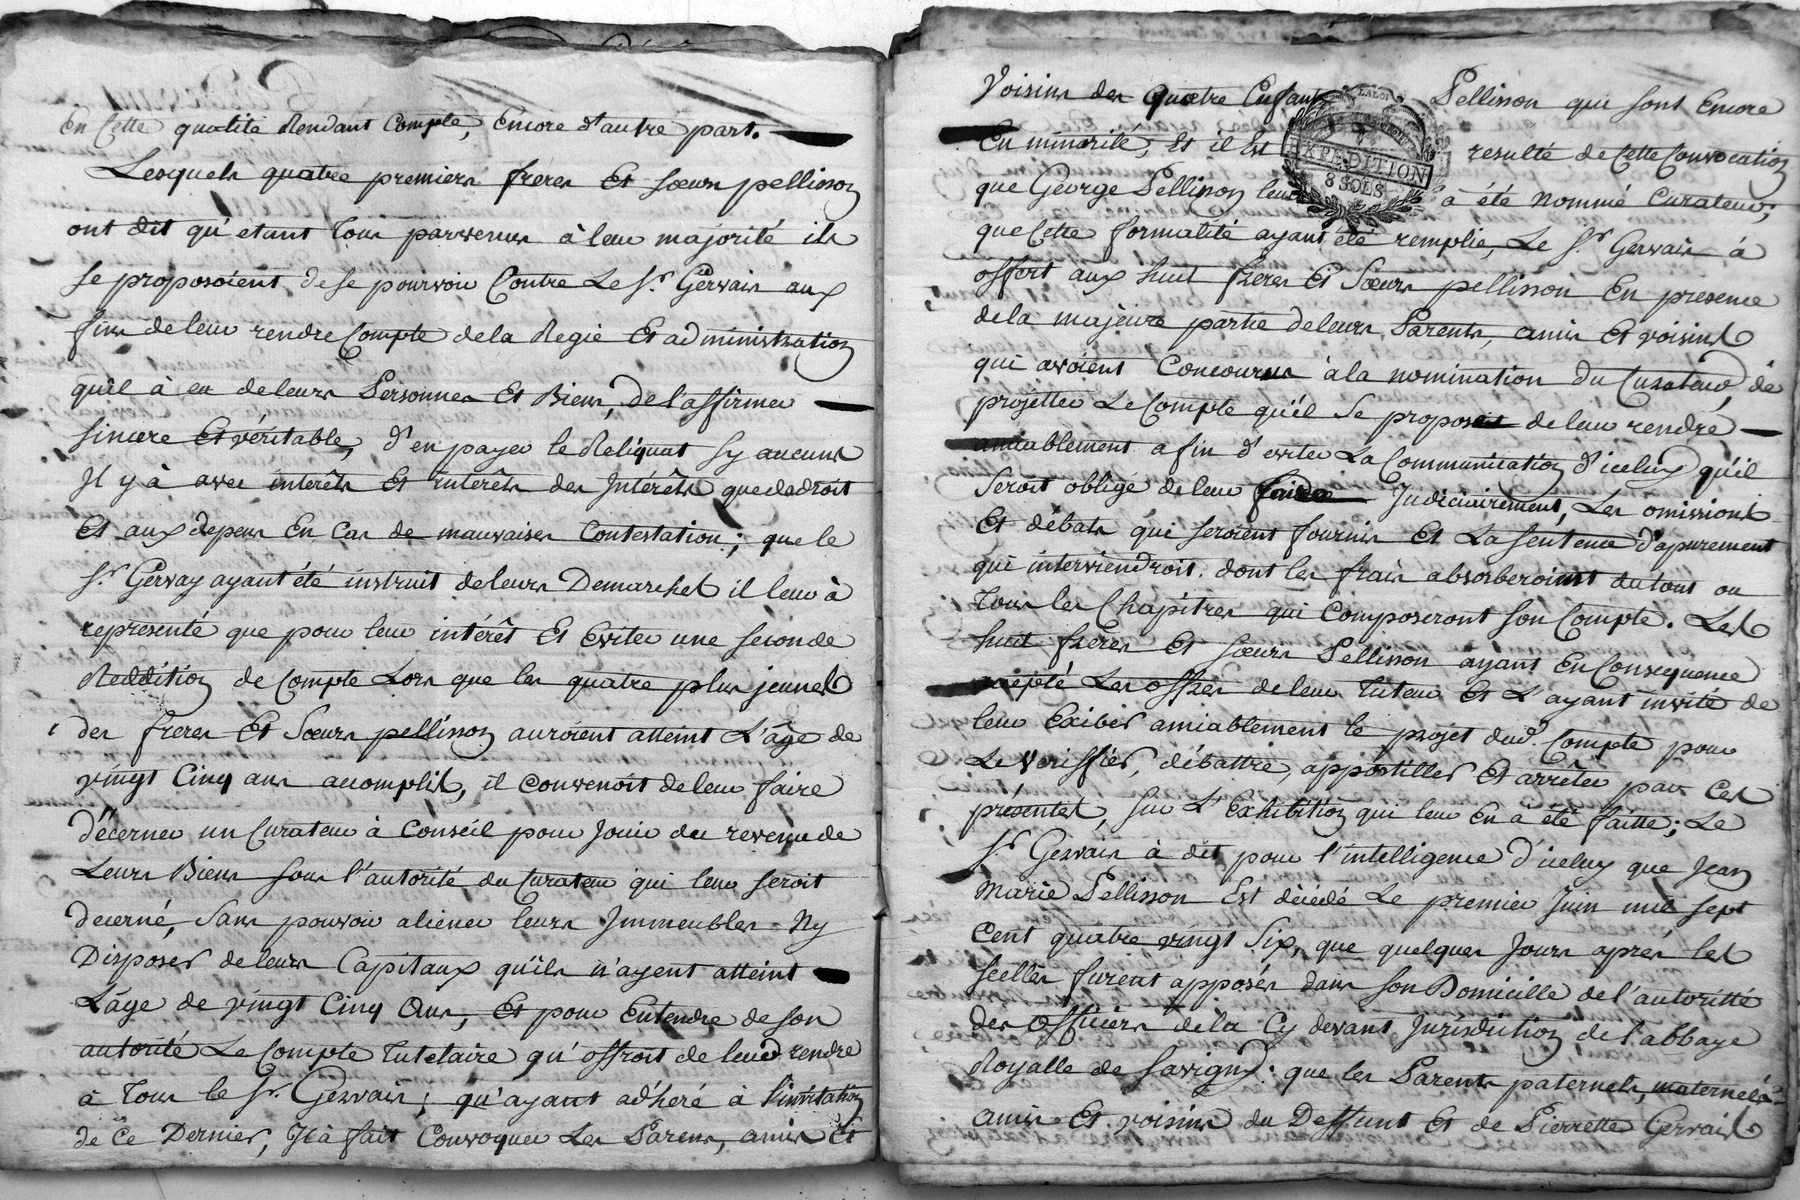 En Cette qualité Rendant Compte, Encore d'autre part.
Lesquels quatre premiers frères Et sœurs pellisson
ont dit qu'étant Tous parvenus à leur majorité ils
se proposoient de se pourvoir Contre Le Sr. Gervais aux
fins de leur rendre Compte de la Regie Et administration
qu'il à eu de leurs Personnes Et Biens, de l'affirmer
sincere Et véritable, d'en payer le Reliquat sy aucuns
Il y à avec intérêts Et intérêts des Intérêts que de droit
Et aux depens En Cas de mauvaises Contestation; que le
Sr. Gervay ayant été instruit de leurs Demarches il leur à
representé que pour leur intérêt Et Eviter une seconde
Reddition de Compte Lors que les quatre plus jeunes
des freres Et Sœurs pellisson auroient atteint L'âge de
vingt Cinq ans accomplis, il convenoit de leur faire
décerner un Curateur à Conseil pour Jouir du revenu de
Leurs Biens sous l'autorité du Curateur qui leur seroit
decerné, Sans pouvoir aliener leurs Immeubles Ny
Disposer de leurs Capitaux qu'ils n'ayent atteint
L'âge de vingt Cinq Ans, Et pour Entendre de son
autorité Le Compte Tutelaire qu'offroit de leur rendre
à Tous le Sr. Gervais; qu'ayant adhéré à l'invitation
de Ce Dernier, Il à fait Convoquer Les Parens, amis Et
Voisins des Quatre Enfans Pellisson qui sont Encore
En minorité, Et il Est resulté de Cette Convocation
que George Pellisson leur à été Nommé Curateur,
que Cette formalité ayant été remplie, Le Sr. Gervais à
offert aux huit freres Et Sœurs pellisson En presence
de la majeure partie de leurs Parents, amis Et voisins
qui avoient Concourus à la nomination du Curateur, de
projetter Le Compte qu'il Se proposoit de leur rendre
amiablement afin d'eviter La Communication d'iceluy qu'il
Seroit obligé de leur faire Judiciairement, Les omissions
Et débats qui seroient fournis Et La Sentence d'apurement
qui interviendroit. dont les frais absorberoient du tout ou
Tous les Chapitres qui Composeront son Compte. Les
huit freres Et sœurs Pellisson ayant En Consequence
accepté Les offres de leur Tuteur Et L'ayant invité de
leur Exiber amiablement le projet dud. Compte pour
Le Veriffier, débattre, appostiller Et arrêter par Ces
présentes, sur L'Exhibition qui leur En à été faitte; Le
Sr. Gervais à dit pour l'intelligence d'iceluy que Jean
Marie Pellisson Est décédé Le premier Juin mil sept
Cent quatre vingt Six, que quelques Jours après les
scellés furent apposés dans son Domicille de l'autoritté
des Officiers de la Cy devant Jurisdiction de l'abbaye
Royalle de Savigny: que les Parents paternels, maternels
amis Et voisins du Deffunt Et de Pierrette Gervais
LA LOI
EXPEDITION
8 SOLS